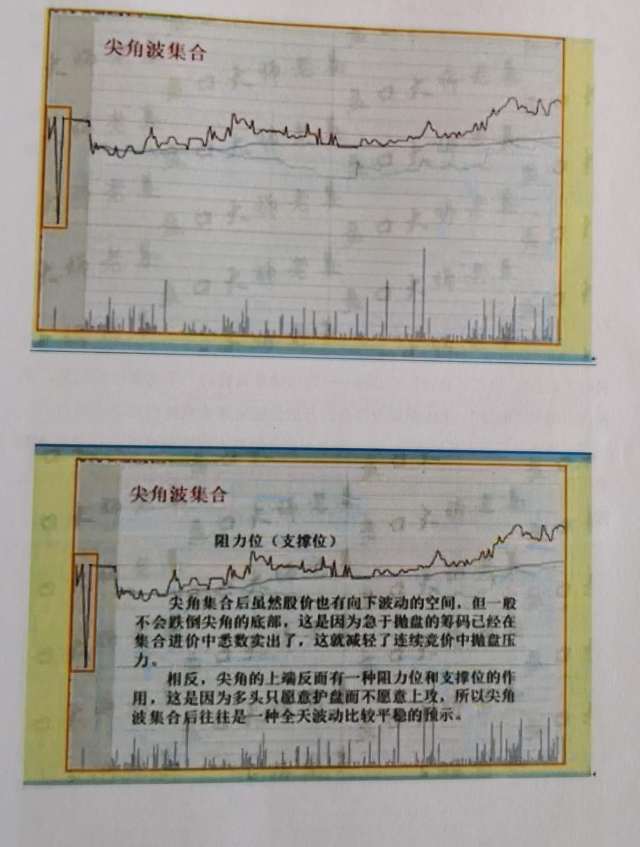 尖角波集合
尖角波集合
阻力位（支撑位）
尖角集合后虽然股价也有向下波动的空间，但一般
不会跌倒尖角的底部，这是因为急于抛盘的筹码已经在
集合进价中悉数实出了，这就减轻了连续竞价中抛盘压
力。
相反，尖角的上端反而有一种阻力位和支撑位的作
用，这是因为多头只愿意护盘而不愿意上攻，所以尖角
波集合后往往是一种全天波动比较平稳的预示。